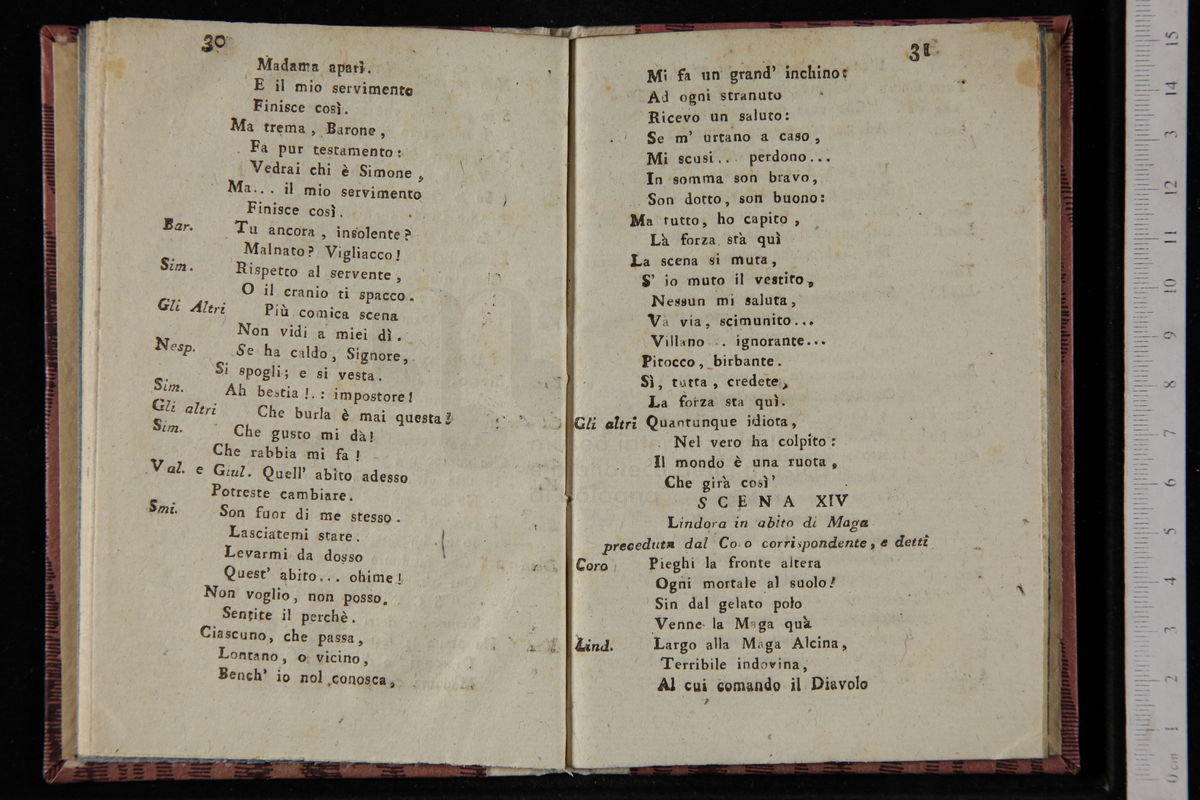 30
Madama aparì.
E il mio servimento
Finisce così.
Ma trema, Barone,
Fa pur testamento:
Vedrai chi è Simone,
Ma... il mio servimento
Finisce così.
Bar. Tu ancora, insolente?
Malnato? Vigliacco!
Sim. Rispetto al servente,
O il cranio ti spacco.
Gli Altri Più comica scena
Non vidi a miei dì.
Nesp. Se ha caldo, Signore,
Si spogli; e si vesta.
Sim. Ah bestia!.: impostore!
Gli altri Che burla è mai questa!
Sim. Che gusto mi dà!
Che rabbia mi fa!
Val. e Giul. Quell' abìto adesso
Potreste cambiare.
Smi. Son fuor di me stesso.
Lasciatemi stare.
Levarmi da dosso
Quest' abito... ohime!
Non voglio, non posso.
Sentite il perchè.
Ciascuno, che passa,
Lontano, o vicino,
Bench' io nol conosca,
31
Mi fa un grand' inchino:
Ad ogni stranuto
Ricevo un saluto:
Se m' urtano a caso,
Mi scusi... perdono...
In somma son bravo,
Son dotto, son buono:
Ma tutto, ho capito,
Là forza stà quì
La scena si muta,
S' io muto il vestito,
Nessun mi saluta,
Va via, scimunito...
Villano .. ignorante...
Pitocco, birbante.
Sì, tutta, credete,
La forza sta quì.
Gli altri Quantunque idiota,
Nel vero ha colpito:
Il mondo è una ruota,
Che girà così'
SCENA XIV
Lindora in abito di Maga
preceduta dal Coro corrispondente, e detti
Coro Pieghi la fronte altera
Ogni mortale al suolo!
Sin dal gelato polo
Venne la Maga quà
Lind. Largo alla Maga Alcina,
Terribile indovina,
Al cui comando il Diavolo
0 cm 1 2 3 4 5 6 7 8 9 10 11 12 13 14 15